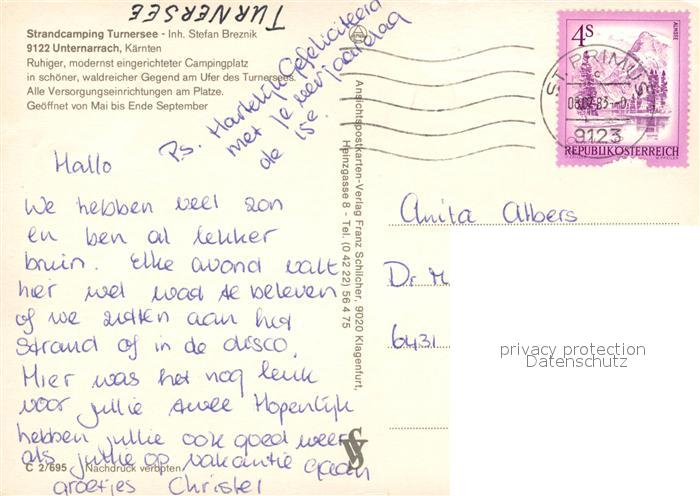 TURNERSEE
Strandcamping Turnersee - Inh. Stefan Breznik
9122 Unternarrach, Kärnten
Ruhiger, modernst eingerichteter Campingplatz
in schöner, waldreicher Gegend am Ufer des Turnersees.
Alle Versorgungseinrichtungen am Platze.
Geöffnet von Mai bis Ende September
P.s. Hartelijk Gefeliciteerd
met je verjaardag
de 15e.
Hallo
We hebben veel zon
en ben al lekker
bruin. Elke avond valt
hier wel wad te beleven
of we zitten aan het
strand of in de disco.
Hier was het nog leuk
voor jullie twee Hopenlijk
hebben jullie ook goed weer
als jullie op vakantie gaan
groetjes Christel
C 2/695 Nachdruck verboten
Ansichtspostkarten-Verlag Franz Schilcher, 9020 Klagenfurt,
Heinzgasse 8 - Tel. (0 42 22) 56 4 75
ALMSEE
4S
REPUBLIK ÖSTERREICH
ST. PRIMUS
9123
Anita Albers
Dr M
6431
privacy protection
Datenschutz